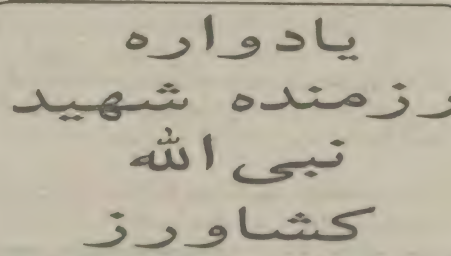 یادواره
رزمنده شهید
نبی الله
کشاورز